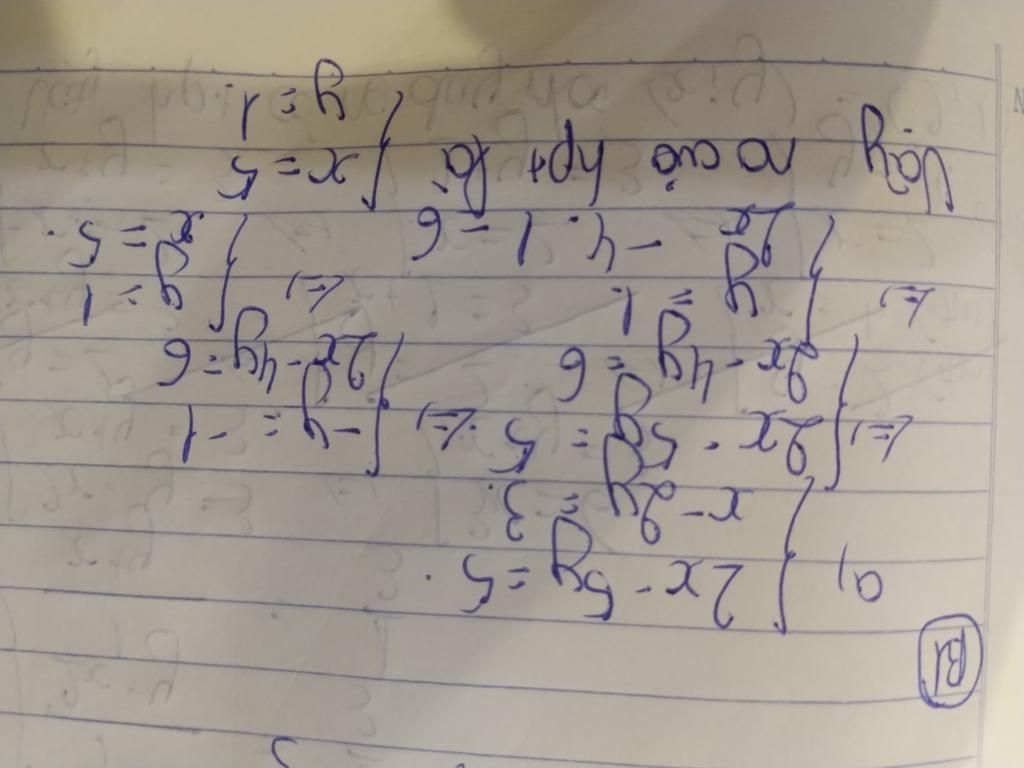 B1
a, { 2x - 5y = 5.
x - 2y = 3.
<=> { 2x - 5y = 5 <=> { -y = -1
2x - 4y = 6 { 2x - 4y = 6
<=> { y = 1. <=> { y = 1
2x - 4.1 = 6 { x = 5.
Vậy no của hpt là { x = 5
y = 1.